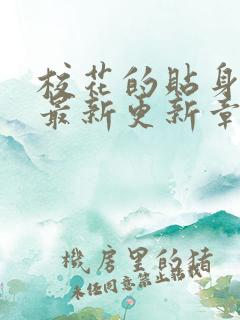 校花的貼身
最新更新章
機房里的猪
未经同意禁止转载